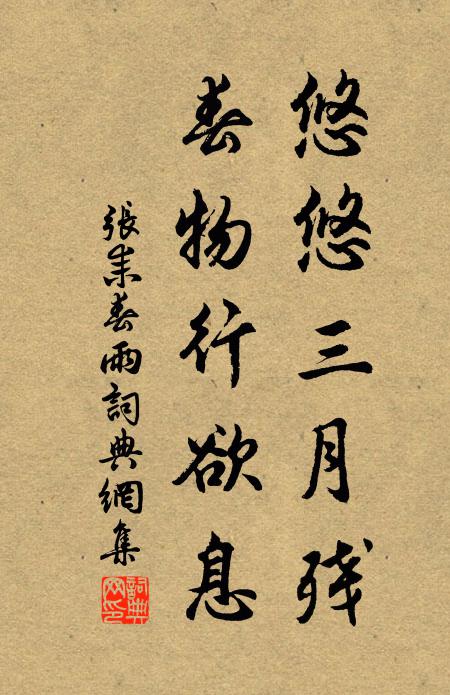 悠悠三月残
春物行欲息
張耒春雨詞典網集
詞典网印